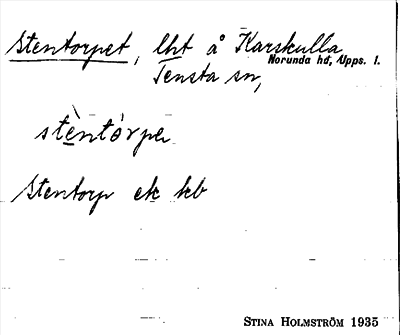 Stentorpet, lht å Karskulla
Norunda hd, Upps. l.
Tensta sn,
stèntòrpe
Stentorp ek kb
STINA HOLMSTRÖM 1935